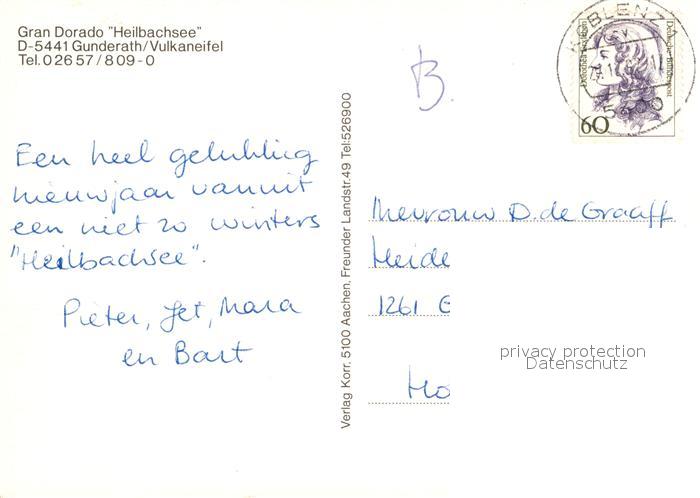 Gran Dorado "Heilbachsee"
D-5441 Gunderath/Vulkaneifel
Tel. 0 26 57 / 8 09 - 0
B.
KOBLENZ 1
5400
Dorothea Erxleben
Deutsche Bundespost
60
Een heel gelukkig
nieuwjaar vanuit
een niet zo winters
"Heilbachsee".
Pieter, Jet, Mara
en Bart
Verlag Korr, 5100 Aachen, Freunder Landstr.49 Tel:526900
Mevrouw D. de Graaff
Heide
1261 E
Ho
privacy protection
Datenschutz